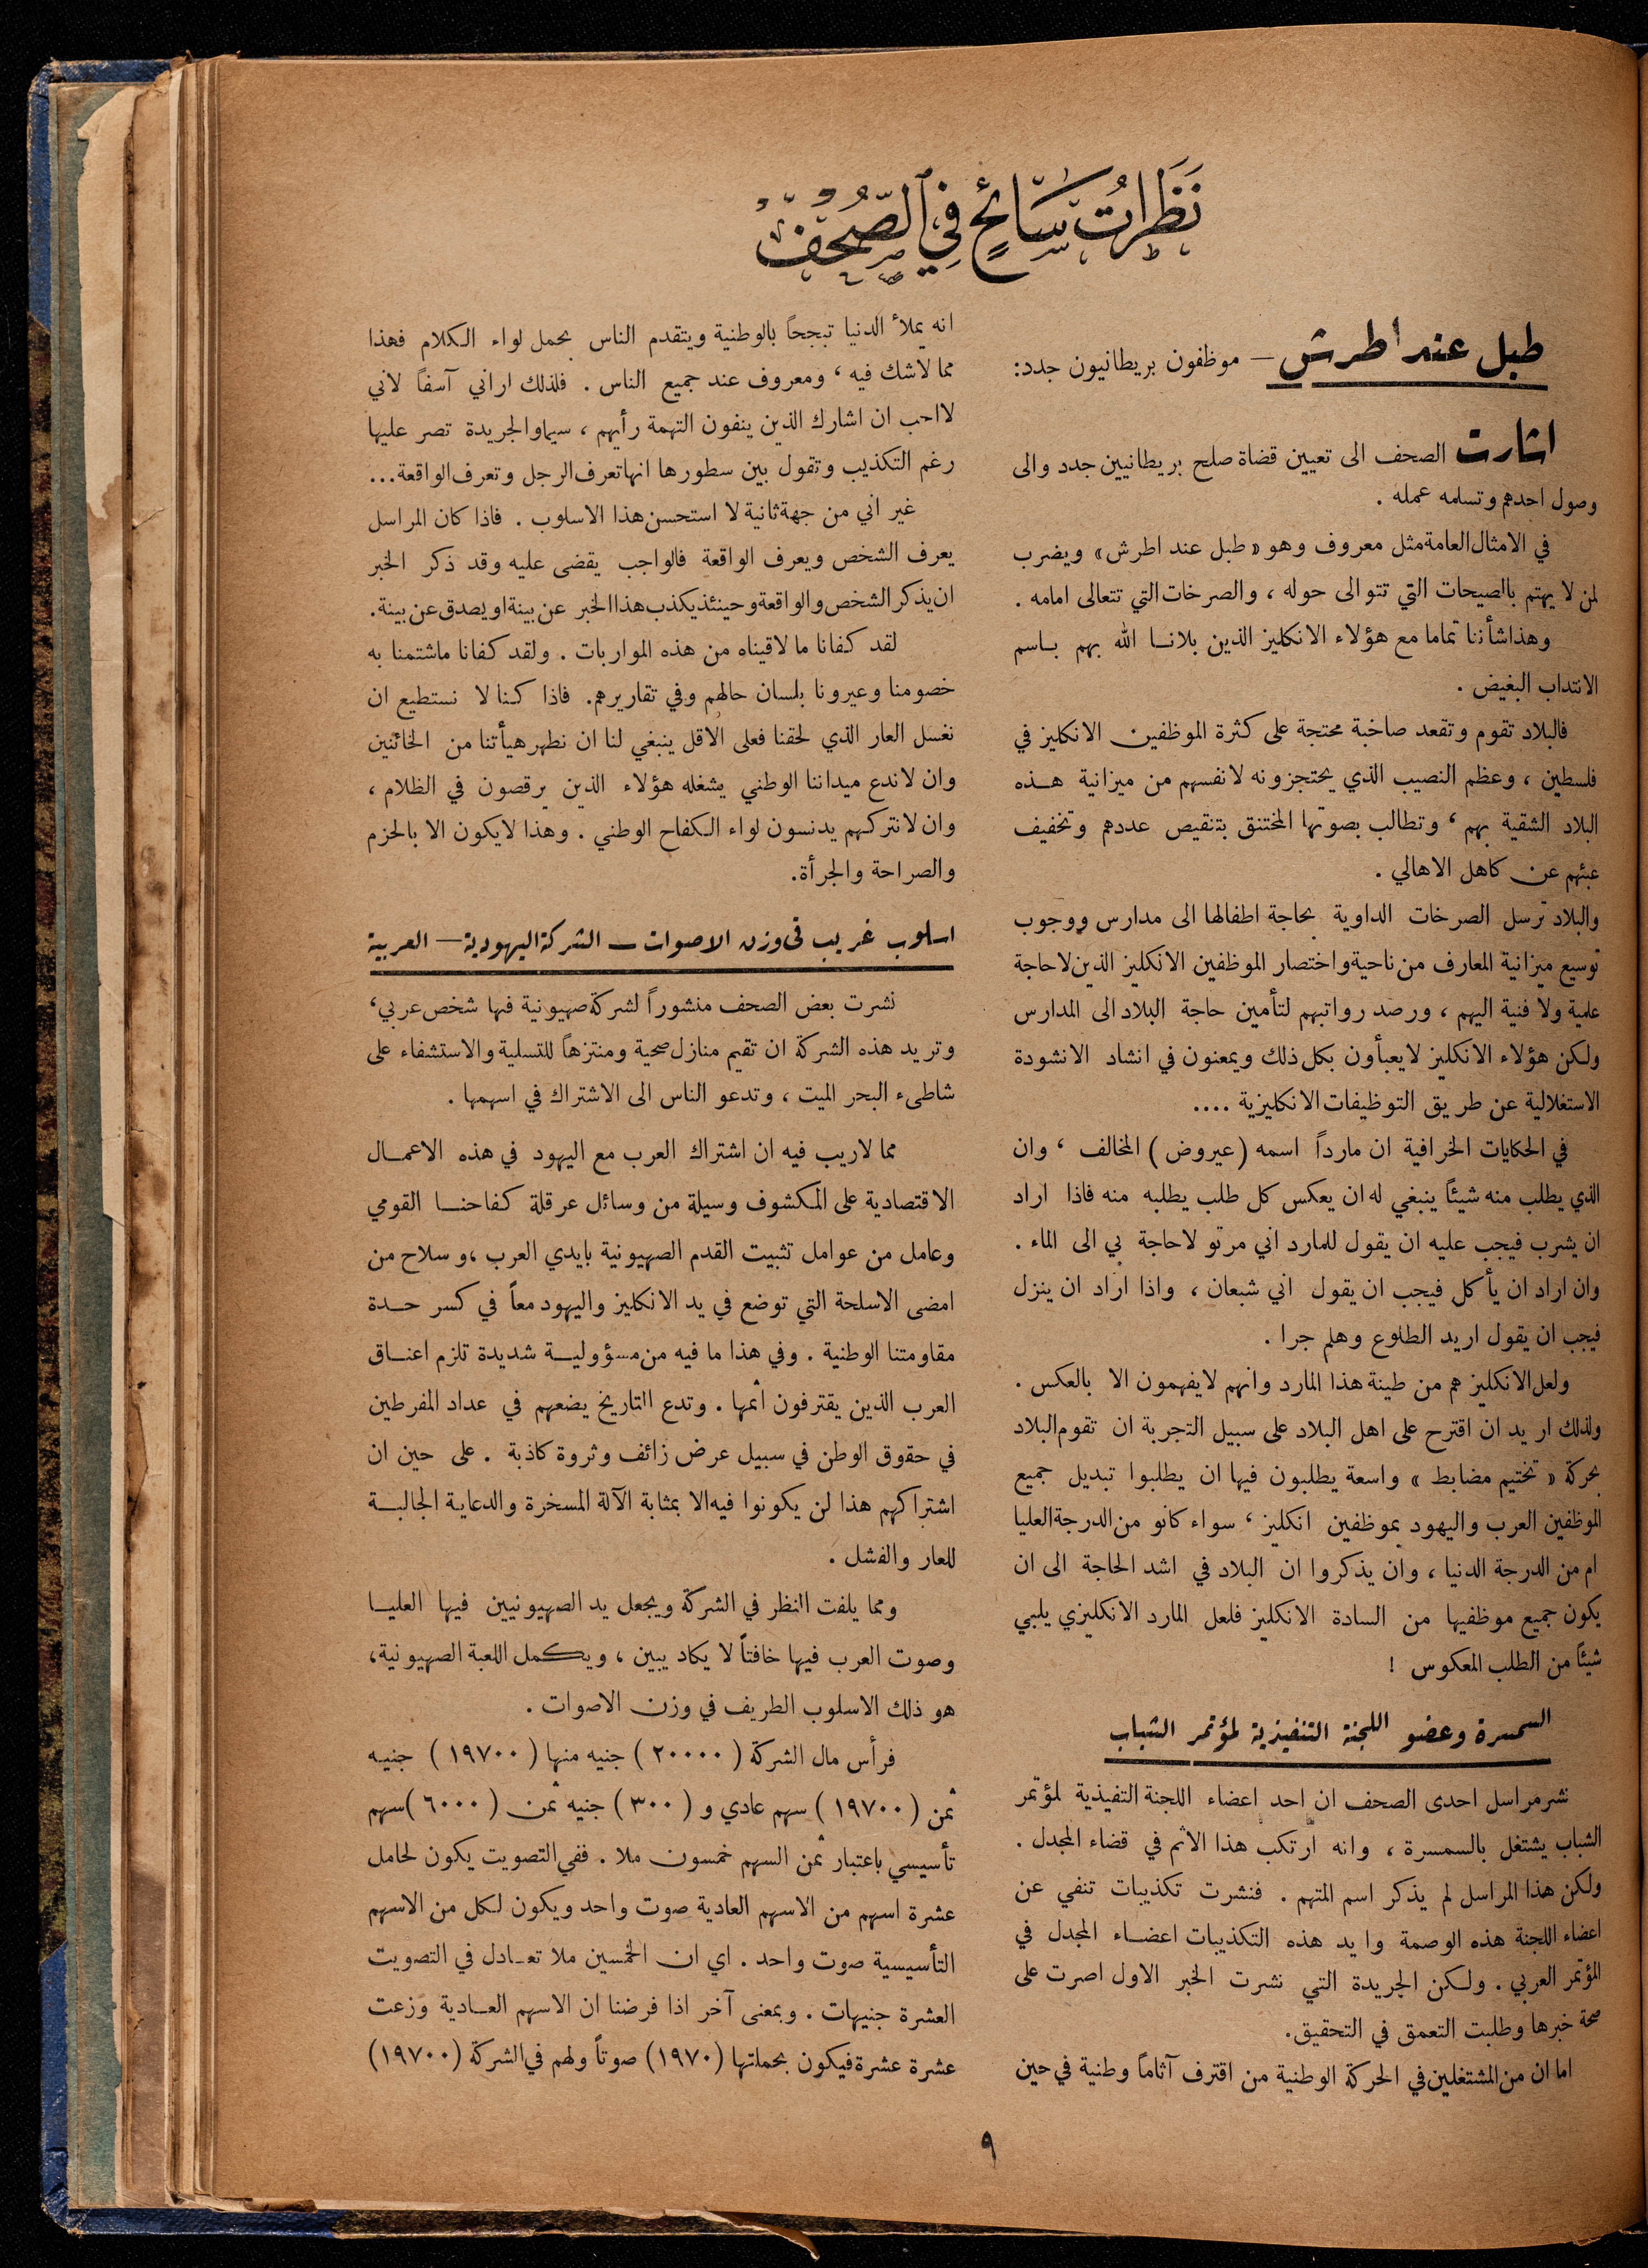 نَظَرَاتُ سَائِحٍ فِي الصُّحُفْ
طبل عند اطرش — موظفون بريطانيون جدد:
اشارت الصحف الى تعيين قضاة صلح بريطانيين جدد والى
وصول احدهم وتسلمه عمله .
في الامثال العامة مثل معروف وهو « طبل عند اطرش » ويضرب
لمن لا يهتم بالصيحات التي تتوالى حوله ، والصرخات التي تتعالى امامه .
وهذا شأننا تماما مع هؤلاء الانكليز الذين بلانا الله بهم باسم
الانتداب البغيض .
فالبلاد تقوم وتقعد صاخبة محتجة على كثرة الموظفين الانكليز في
فلسطين ، وعظم النصيب الذي يحتجزونه لانفسهم من ميزانية هذه
البلاد الشقية بهم ، وتطالب بصوتها المختنق بتنقيص عددهم وتخفيف
عبئهم عن كاهل الاهالي .
والبلاد ترسل الصرخات الداوية بحاجة اطفالها الى مدارس ووجوب
توسيع ميزانية المعارف من ناحية واختصار الموظفين الانكليز الذين لا حاجة
علمية ولا فنية اليهم ، ورصد رواتبهم لتأمين حاجة البلاد الى المدارس
ولكن هؤلاء الانكليز لا يعبأون بكل ذلك ويمعنون في انشاد الانشودة
الاستغلالية عن طريق التوظيفات الانكليزية ....
في الحكايات الخرافية ان مارداً اسمه ( عيروض ) المخالف ، وان
الذي يطلب منه شيئاً ينبغي له ان يعكس كل طلب يطلبه منه فاذا اراد
ان يشرب فيجب عليه ان يقول للمارد اني مرتو لا حاجة بي الى الماء .
وان اراد ان يأكل فيجب ان يقول اني شبعان ، واذا اراد ان ينزل
فيجب ان يقول اريد الطلوع وهلم جرا .
ولعل الانكليز هم من طينة هذا المارد وانهم لا يفهمون الا بالعكس .
ولذلك اريد ان اقترح على اهل البلاد على سبيل التجربة ان تقوم البلاد
بحركة « تختيم مضابط » واسعة يطلبون فيها ان يطلبوا تبديل جميع
الموظفين العرب واليهود بموظفين انكليز ، سواء كانو من الدرجة العليا
ام من الدرجة الدنيا ، وان يذكروا ان البلاد في اشد الحاجة الى ان
يكون جميع موظفيها من السادة الانكليز فلعل المارد الانكليزي يلبي
شيئاً من الطلب المعكوس !
السمسرة وعضو اللجنة التنفيذية لمؤتمر الشباب
نشر مراسل احدى الصحف ان احد اعضاء اللجنة التفيذية لمؤتمر
الشباب يشتغل بالسمسرة ، وانه ارتكب هذا الاثم في قضاء المجدل .
ولكن هذا المراسل لم يذكر اسم المتهم . فنشرت تكذيبات تنفي عن
اعضاء اللجنة هذه الوصمة وايد هذه التكذيبات اعضاء المجدل في
المؤتمر العربي . ولكن الجريدة التي نشرت الخبر الاول اصرت على
صحة خبرها وطلبت التعمق في التحقيق.
اما ان من المشتغلين في الحركة الوطنية من اقترف آثاماً وطنية في حين
انه يملأ الدنيا تبجحاً بالوطنية ويتقدم الناس بحمل لواء الكلام فهذا
مما لا شك فيه ، ومعروف عند جميع الناس . فلذلك اراني آسفاً لاني
لا احب ان اشارك الذين ينفون التهمة رأيهم ، سيما والجريدة تصر عليها
رغم التكذيب وتقول بين سطورها انها تعرف الرجل وتعرف الواقعة...
غير اني من جهة ثانية لا استحسن هذا الاسلوب . فاذا كان المراسل
يعرف الشخص ويعرف الواقعة فالواجب يقضى عليه وقد ذكر الخبر
ان يذكر الشخص والواقعة وحينئذ يكذب هذا الخبر عن بينة او يصدق عن بينة.
لقد كفانا ما لاقيناه من هذه المواربات . ولقد كفانا ما شتمنا به
خصومنا وعيرونا بلسان حالهم وفي تقاريرهم. فاذا كنا لا نستطيع ان
نغسل العار الذي لحقنا فعلى الاقل ينبغي لنا ان نطهر هيأتنا من الخائنين
وان لا ندع ميداننا الوطني يشغله هؤلاء الذين يرقصون في الظلام ،
وان لا نتركهم يدنسون لواء الكفاح الوطني . وهذا لا يكون الا بالحزم
والصراحة والجرأة.
اسلوب غريب في وزن الاصوات — الشركة اليهودية — العربية
نشرت بعض الصحف منشوراً لشركة صهيونية فيها شخص عربي ،
وتريد هذه الشركة ان تقيم منازل صحية ومنتزهاً للتسلية والاستشفاء على
شاطىء البحر الميت ، وتدعو الناس الى الاشتراك في اسهمها .
مما لا ريب فيه ان اشتراك العرب مع اليهود في هذه الاعمال
الاقتصادية على المكشوف وسيلة من وسائل عرقلة كفاحنا القومي
وعامل من عوامل تثبيت القدم الصهيونية بايدي العرب ، وسلاح من
امضى الاسلحة التي توضع في يد الانكليز واليهود معاً في كسر حدة
مقاومتنا الوطنية . وفي هذا ما فيه من مسؤولية شديدة تلزم اعناق
العرب الذين يقترفون اثمها . وتدع التاريخ يضعهم في عداد المفرطين
في حقوق الوطن في سبيل عرض زائف وثروة كاذبة . على حين ان
اشتراكهم هذا لن يكونوا فيه الا بمثابة الآلة المسخرة والدعاية الجالبة
للعار والفشل .
ومما يلفت النظر في الشركة ويجعل يد الصهيونيين فيها العليا
وصوت العرب فيها خافتاً لا يكاد يبين ، ويكمل اللعبة الصهيونية ،
هو ذلك الاسلوب الطريف في وزن الاصوات .
فرأس مال الشركة ( ٢٠٠٠٠ ) جنيه منها ( ١٩٧٠٠ ) جنيه
ثمن ( ١٩٧٠٠ ) سهم عادي و ( ٣٠٠ ) جنيه ثمن ( ٦٠٠٠ ) سهم
تأسيسي باعتبار ثمن السهم خمسون ملا . ففي التصويت يكون لحامل
عشرة اسهم من الاسهم العادية صوت واحد ويكون لكل من الاسهم
التأسيسية صوت واحد . اي ان الخمسين ملا تعادل في التصويت
العشرة جنيهات . وبمعنى آخر اذا فرضنا ان الاسهم العادية وزعت
عشرة عشرة فيكون بحملتها (١٩٧٠) صوتاً ولهم في الشركة (١٩٧٠٠)
٩